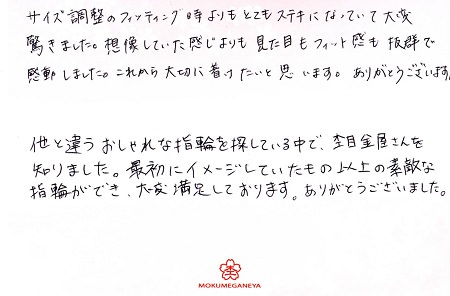 サイズ調整のフィッティング時よりもとてもステキになっていて大変
驚きました。想像していた感じよりも見た目もフィット感も抜群で
感動しました。これから大切に着けたいと思います。ありがとうございます
他と違うおしゃれな指輪を探している中で、杢目金屋さんを
知りました。最初にイメージしていたもの以上の素敵な
指輪ができ、大変満足しております。ありがとうございました。
MOKUMEGANEYA